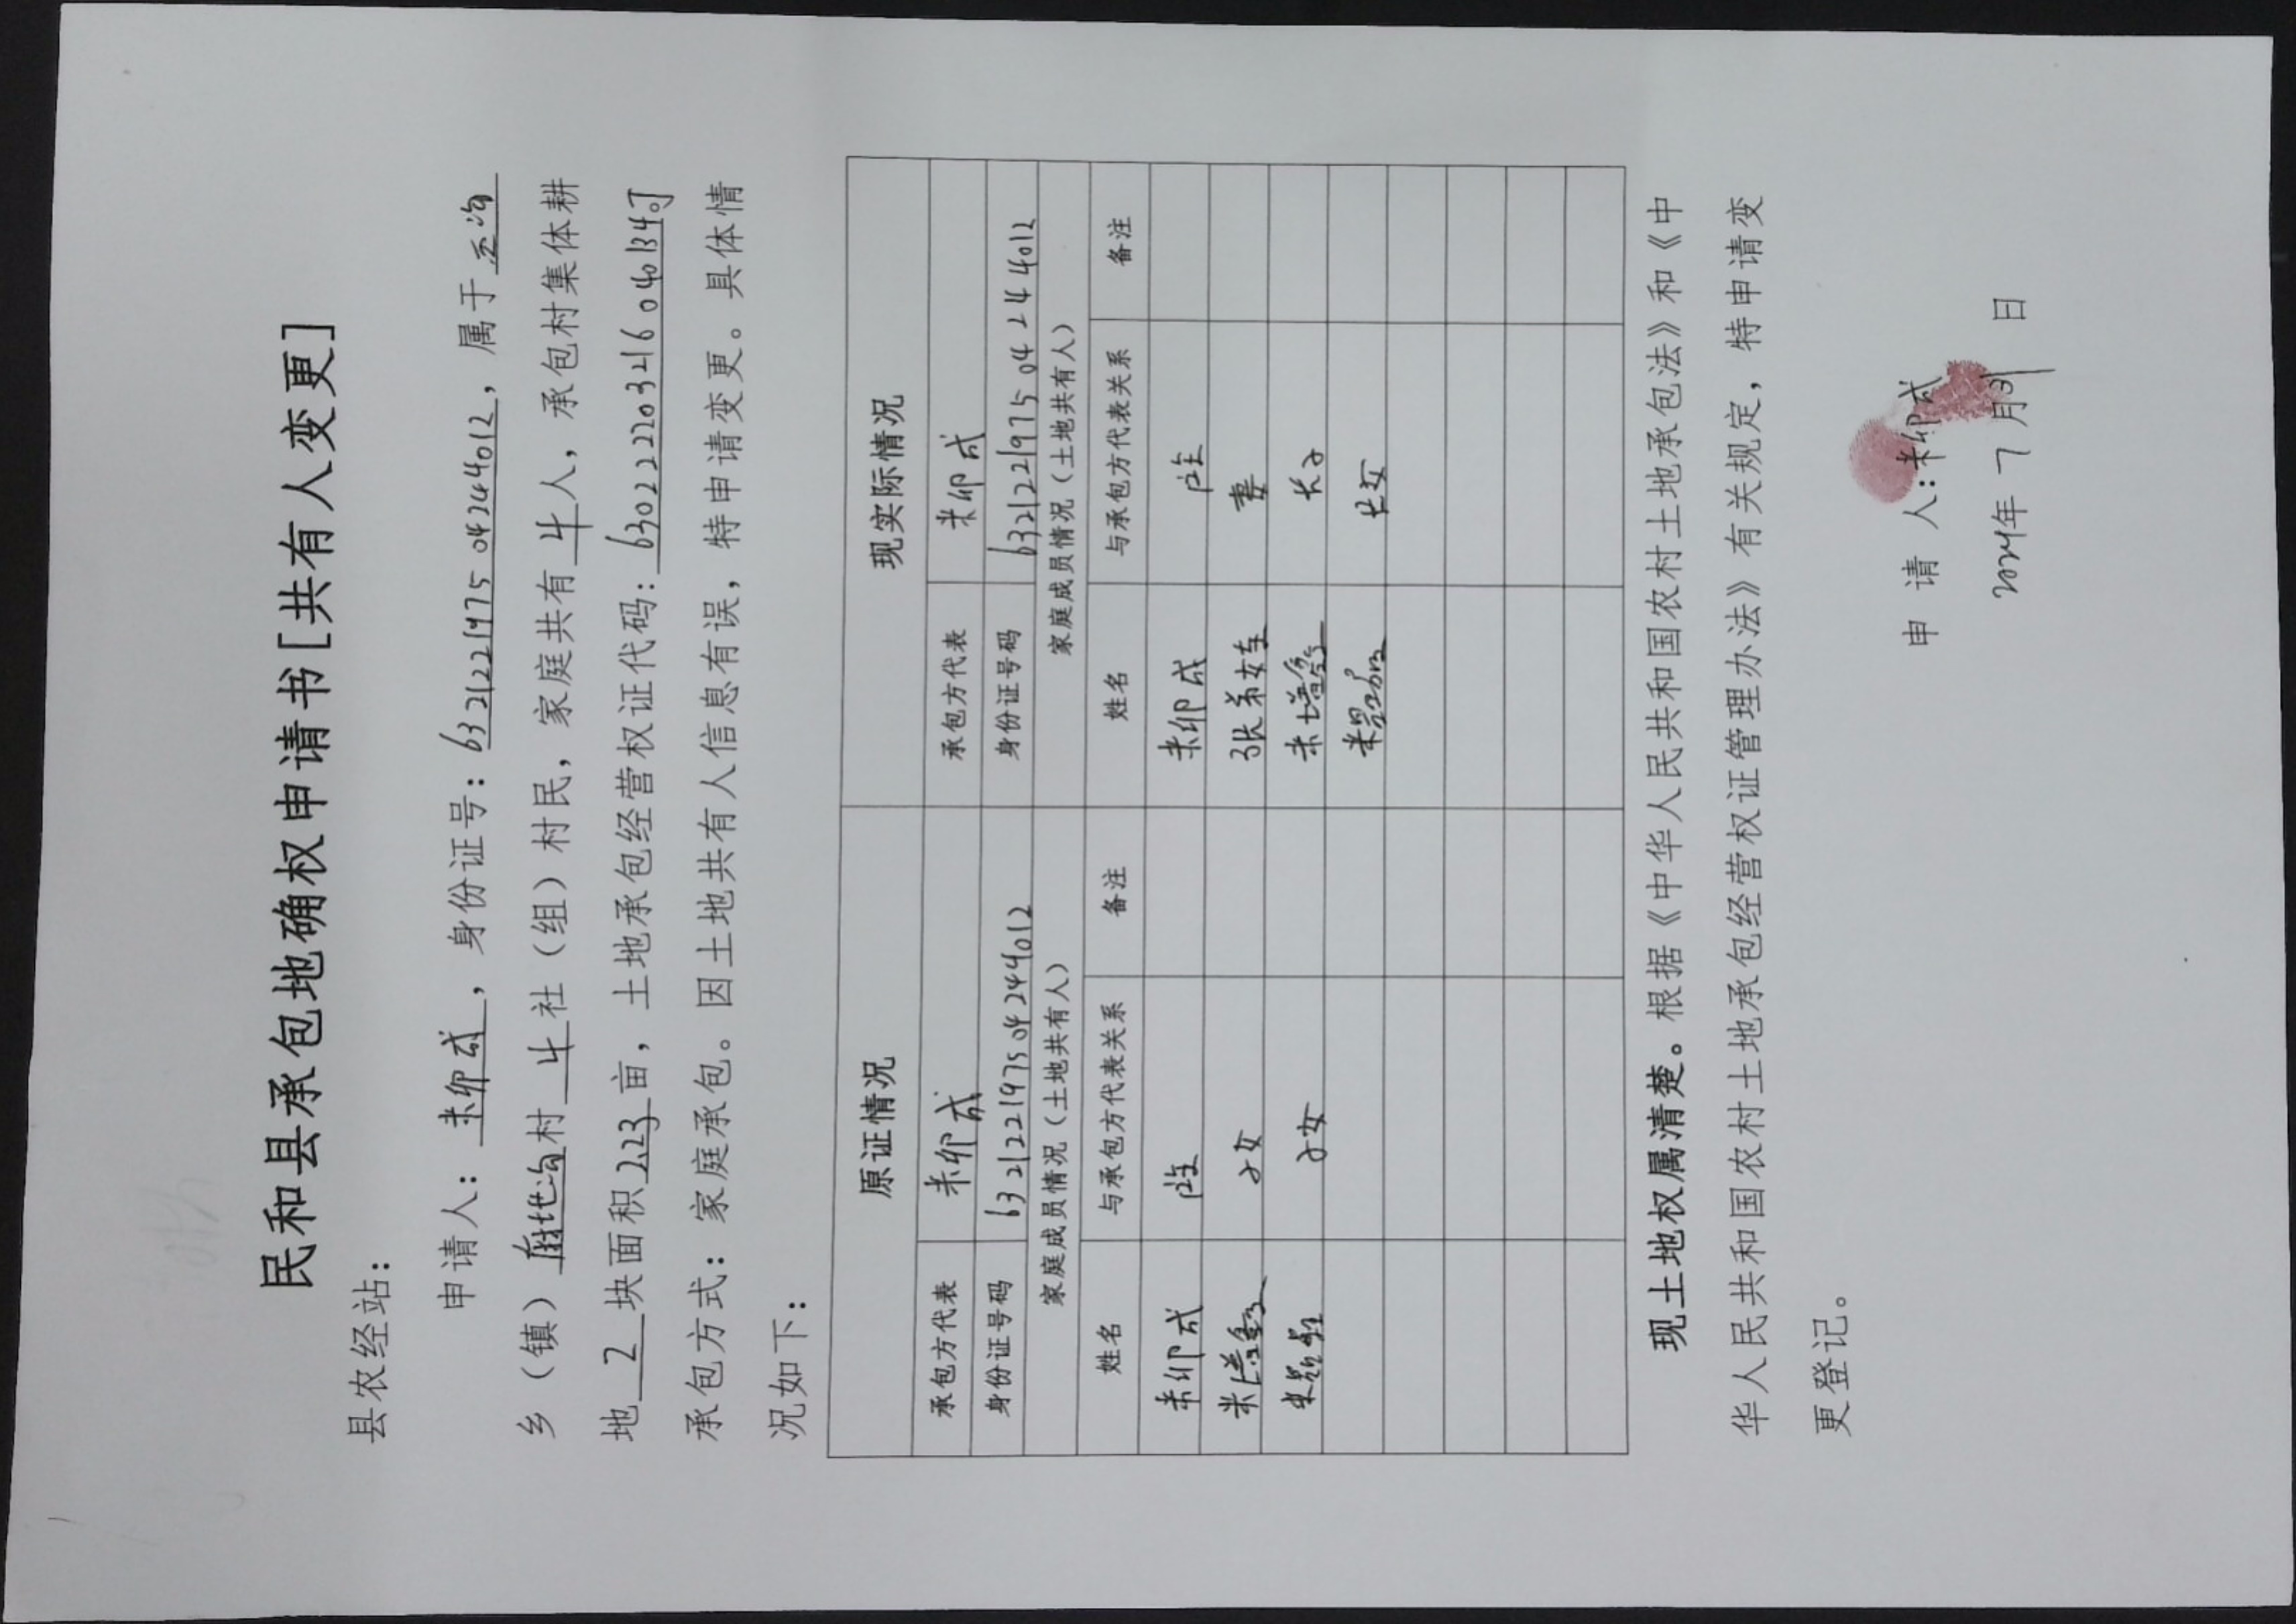 民和县承包地确权申请书[共有人变更]
县农经站：
申请人：米卯成，身份证号：632122197504244012，属于
乡（镇）村 4 社（组）村民，家庭共有 4 人，承包村集体耕
地 2 块面积 2.23 亩，土地承包经营权证代码：
承包方式：家庭承包。因土地共有人信息有误，特申请变更。具体情
况如下：
原证情况 现实际情况
承包方代表 米卯成 承包方代表 米卯成
身份证号码 632122197504244012 身份证号码 632122197504244012
家庭成员情况（土地共有人） 家庭成员情况（土地共有人）
姓名 与承包方代表关系 备注 姓名 与承包方代表关系 备注
米卯成 户主 米卯成 户主
子女 妻
子女 长子
长女
现土地权属清楚。根据《中华人民共和国农村土地承包法》和《中
华人民共和国农村土地承包经营权证管理办法》有关规定，特申请变
更登记。
申 请 人：米卯成
2024年 7 月31 日